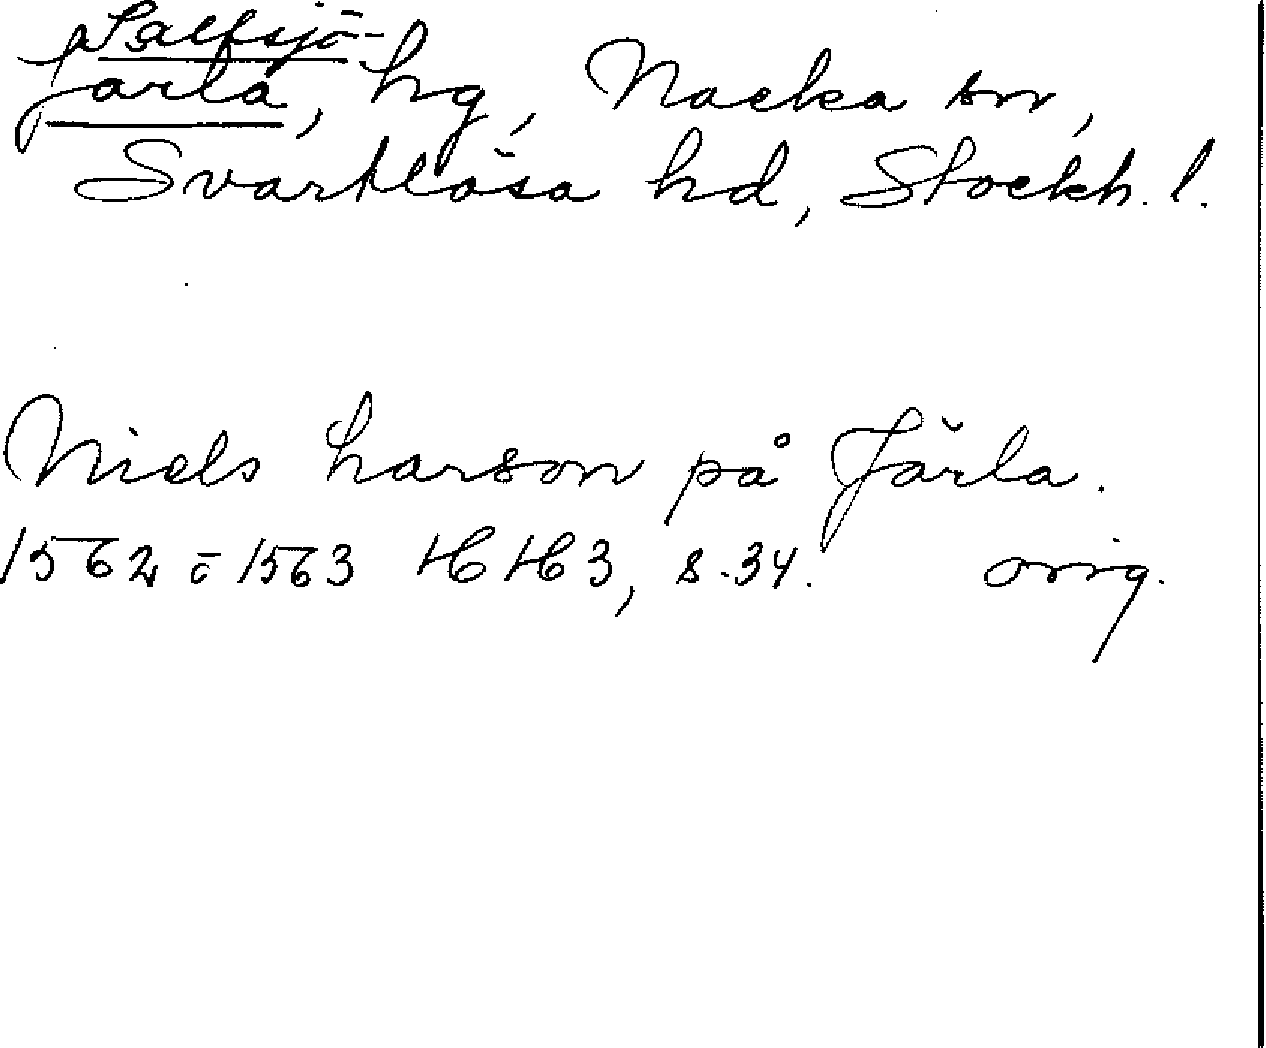 Saltsjö-
Järla, hg, Nacka sn,
Svartlösa hd, Stockh. l.
Niels Larson på Järla.
1562 o 1563 HH 3, s. 34. orig.